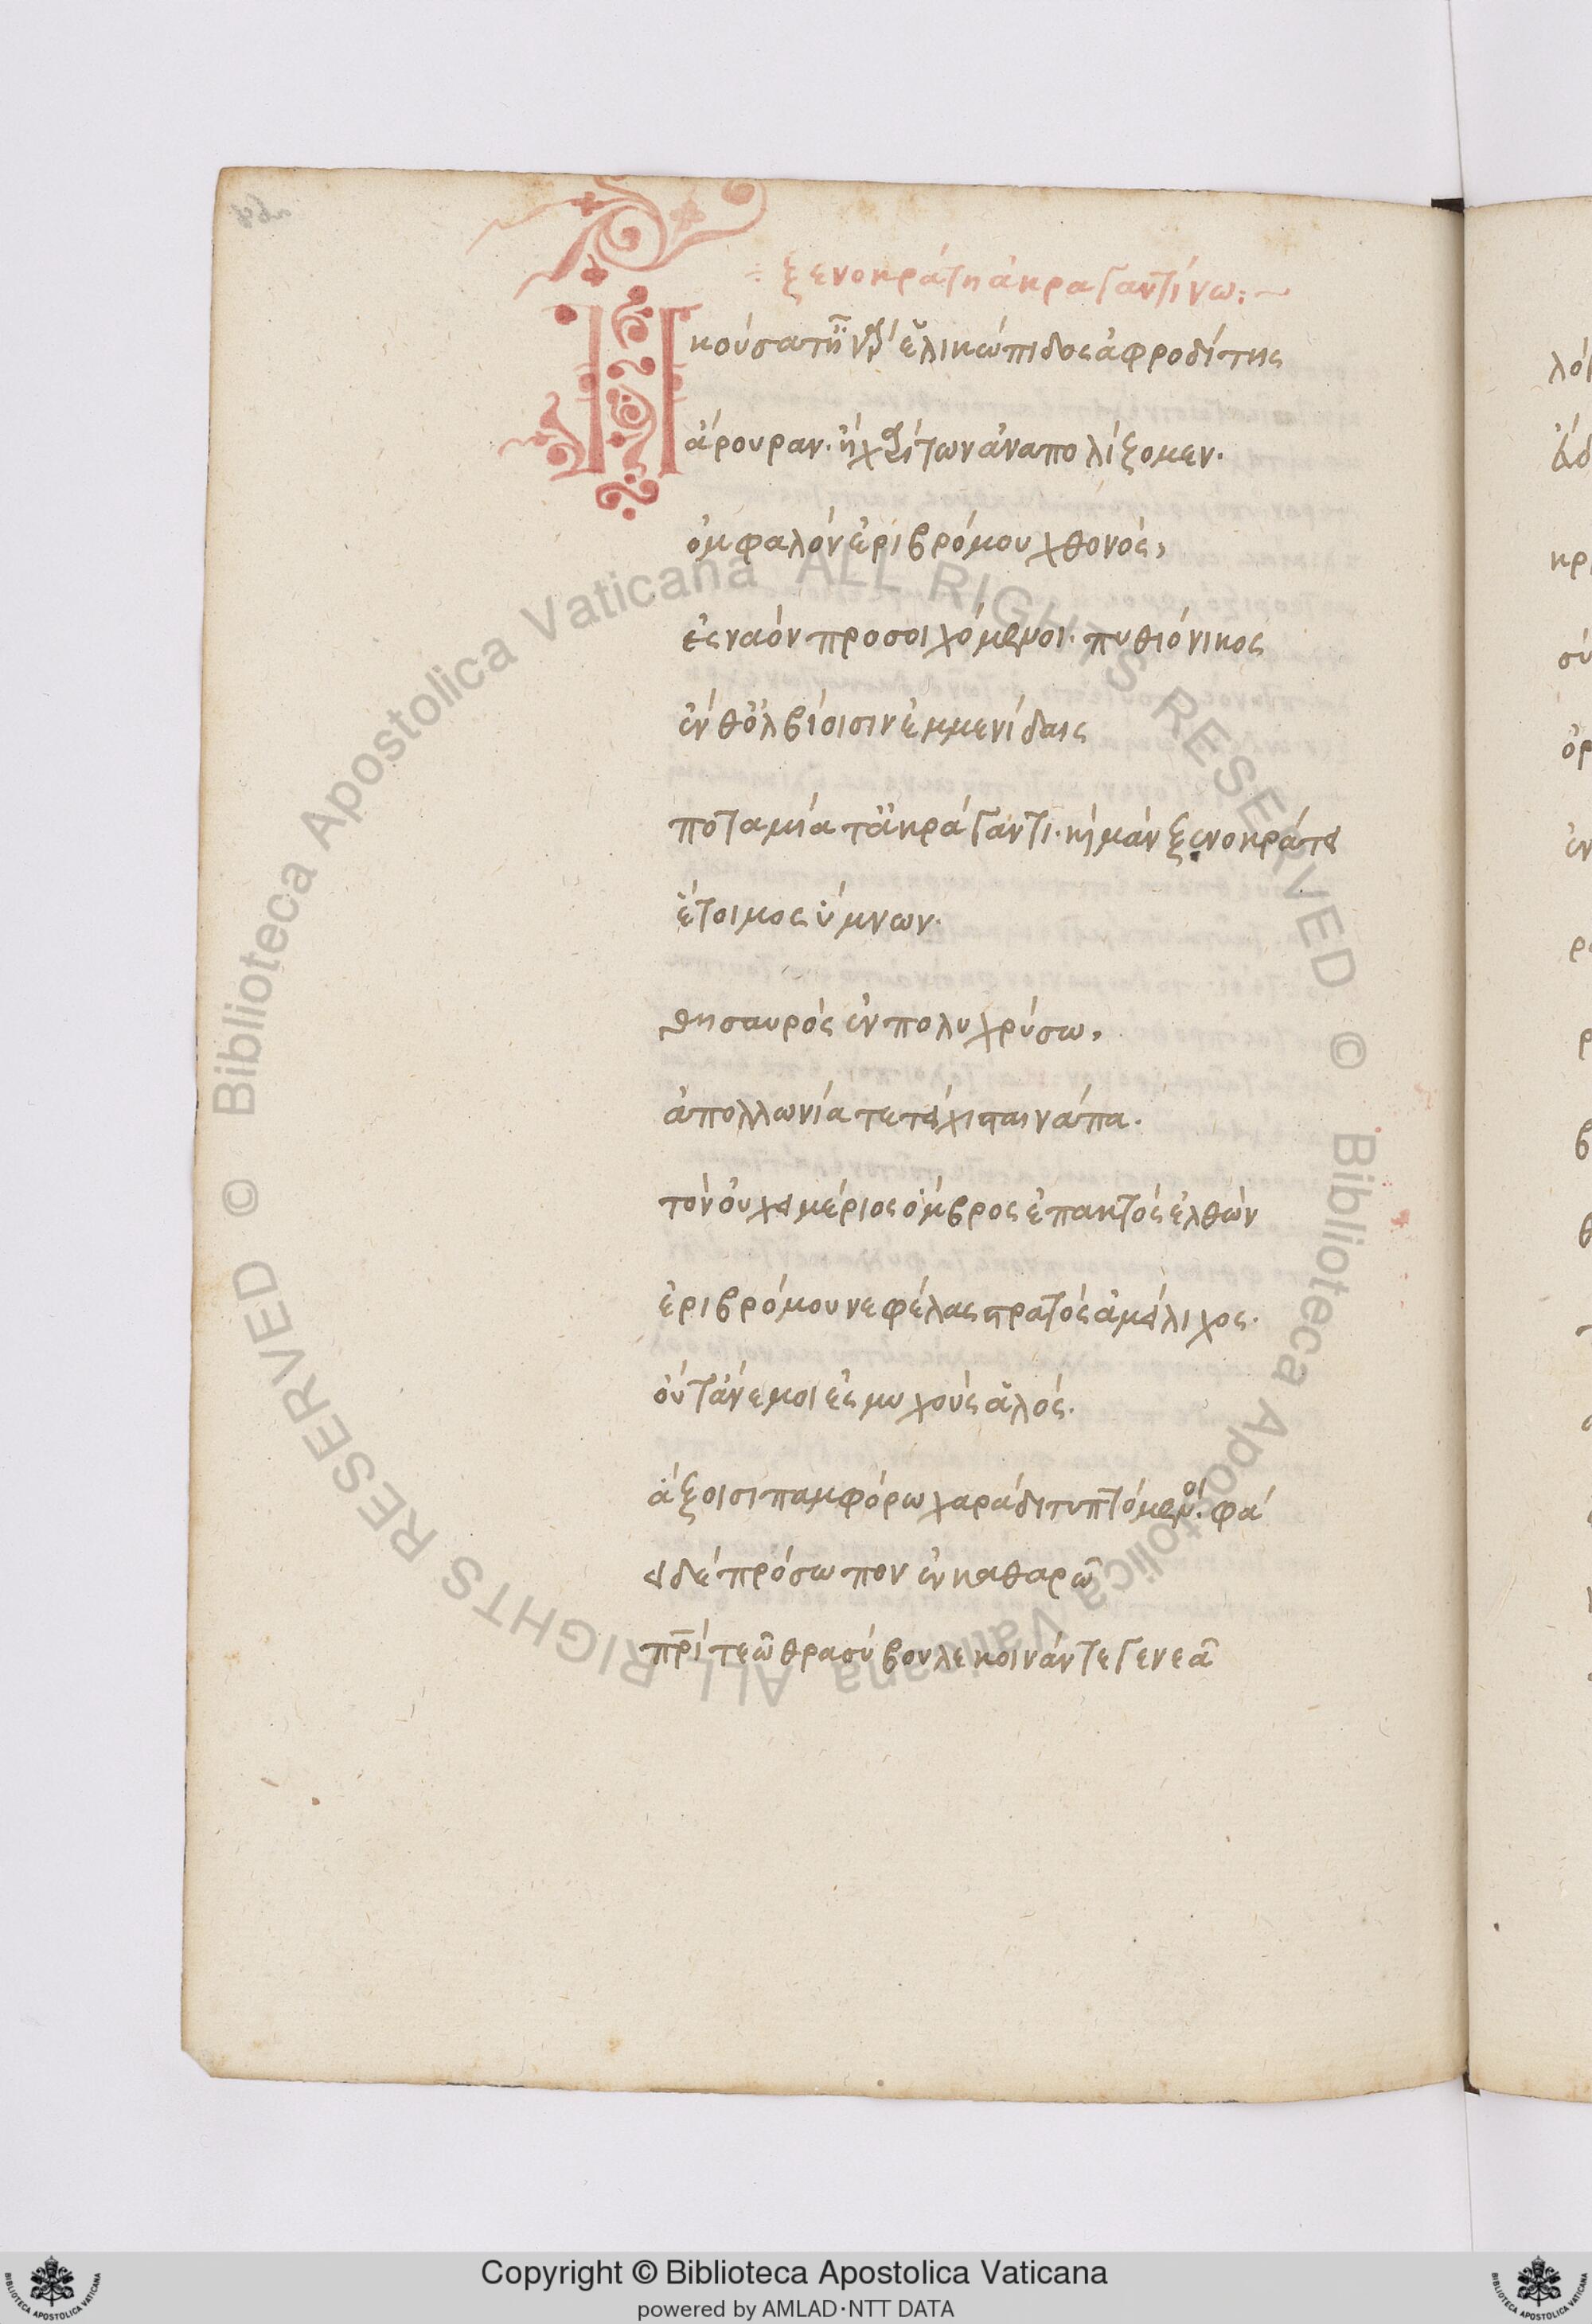 ξενοκράτη ἀκραγαντίνω:~
Π
κούσατ' ἢ γὰρ ἑλικώπιδος ἀφροδίτης
ἄρουραν. ἢ χαρίτων ἀναπολίξομεν.
ὀμφαλὸν ἐριβρόμου χθονὸς,
ἐς ναὸν προσοιχόμενοι. πυθιόνικος
ἔνθ' ὀλβίοισιν ἐμμενίδαις
ποταμία τ' ἀκράγαντι. κὴ μὰν ξενοκράτει
ἑτοῖμος ὕμνων.
θησαυρὸς ἐν πολυχρύσω,
ἀπολλωνία τετείχισται νάπα.
τὸν οὐ χειμέριος ὄμβρος ἐπακτὸς ἐλθὼν
ἐριβρόμου νεφέλας στρατὸς ἀμείλιχος.
οὔτ' ἄνεμοι ἐς μυχοὺς ἁλὸς.
ἄξοισι παμφόρω χαράδι τυπτόμενοι. φά
ει δὲ πρόσωπον ἐν καθαρῶ
πατρὶ τεῶ θρασύβουλε κοινάν τε γενεᾶ
Copyright © Biblioteca Apostolica Vaticana
powered by AMLAD·NTT DATA
© Biblioteca Apostolica Vaticana ALL RIGHTS RESERVED
© Biblioteca Apostolica Vaticana ALL RIGHTS RESERVED